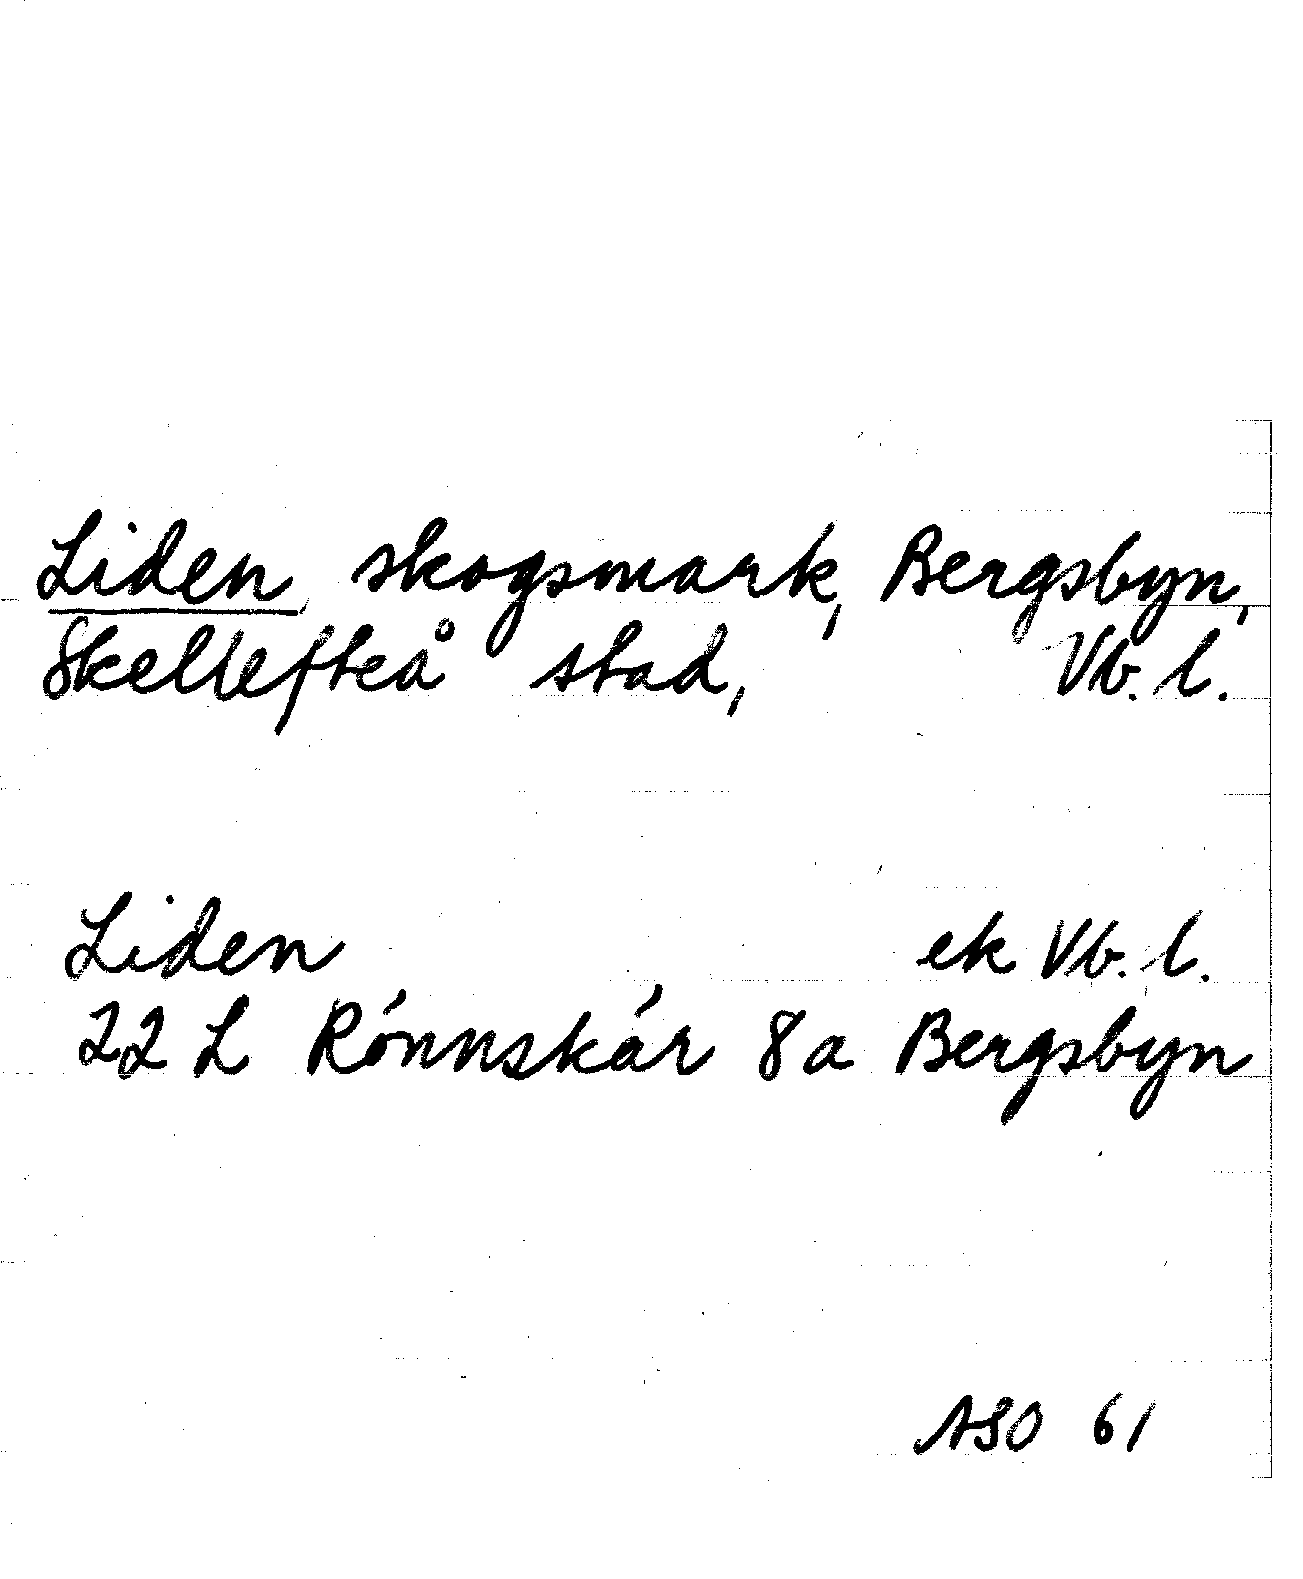 Liden, skogsmark, Bergsbyn,
Skellefteå stad, Vb. l.
Liden ek Vb. l.
22 L Rónnskár 8a Bergsbyn
ASO 61